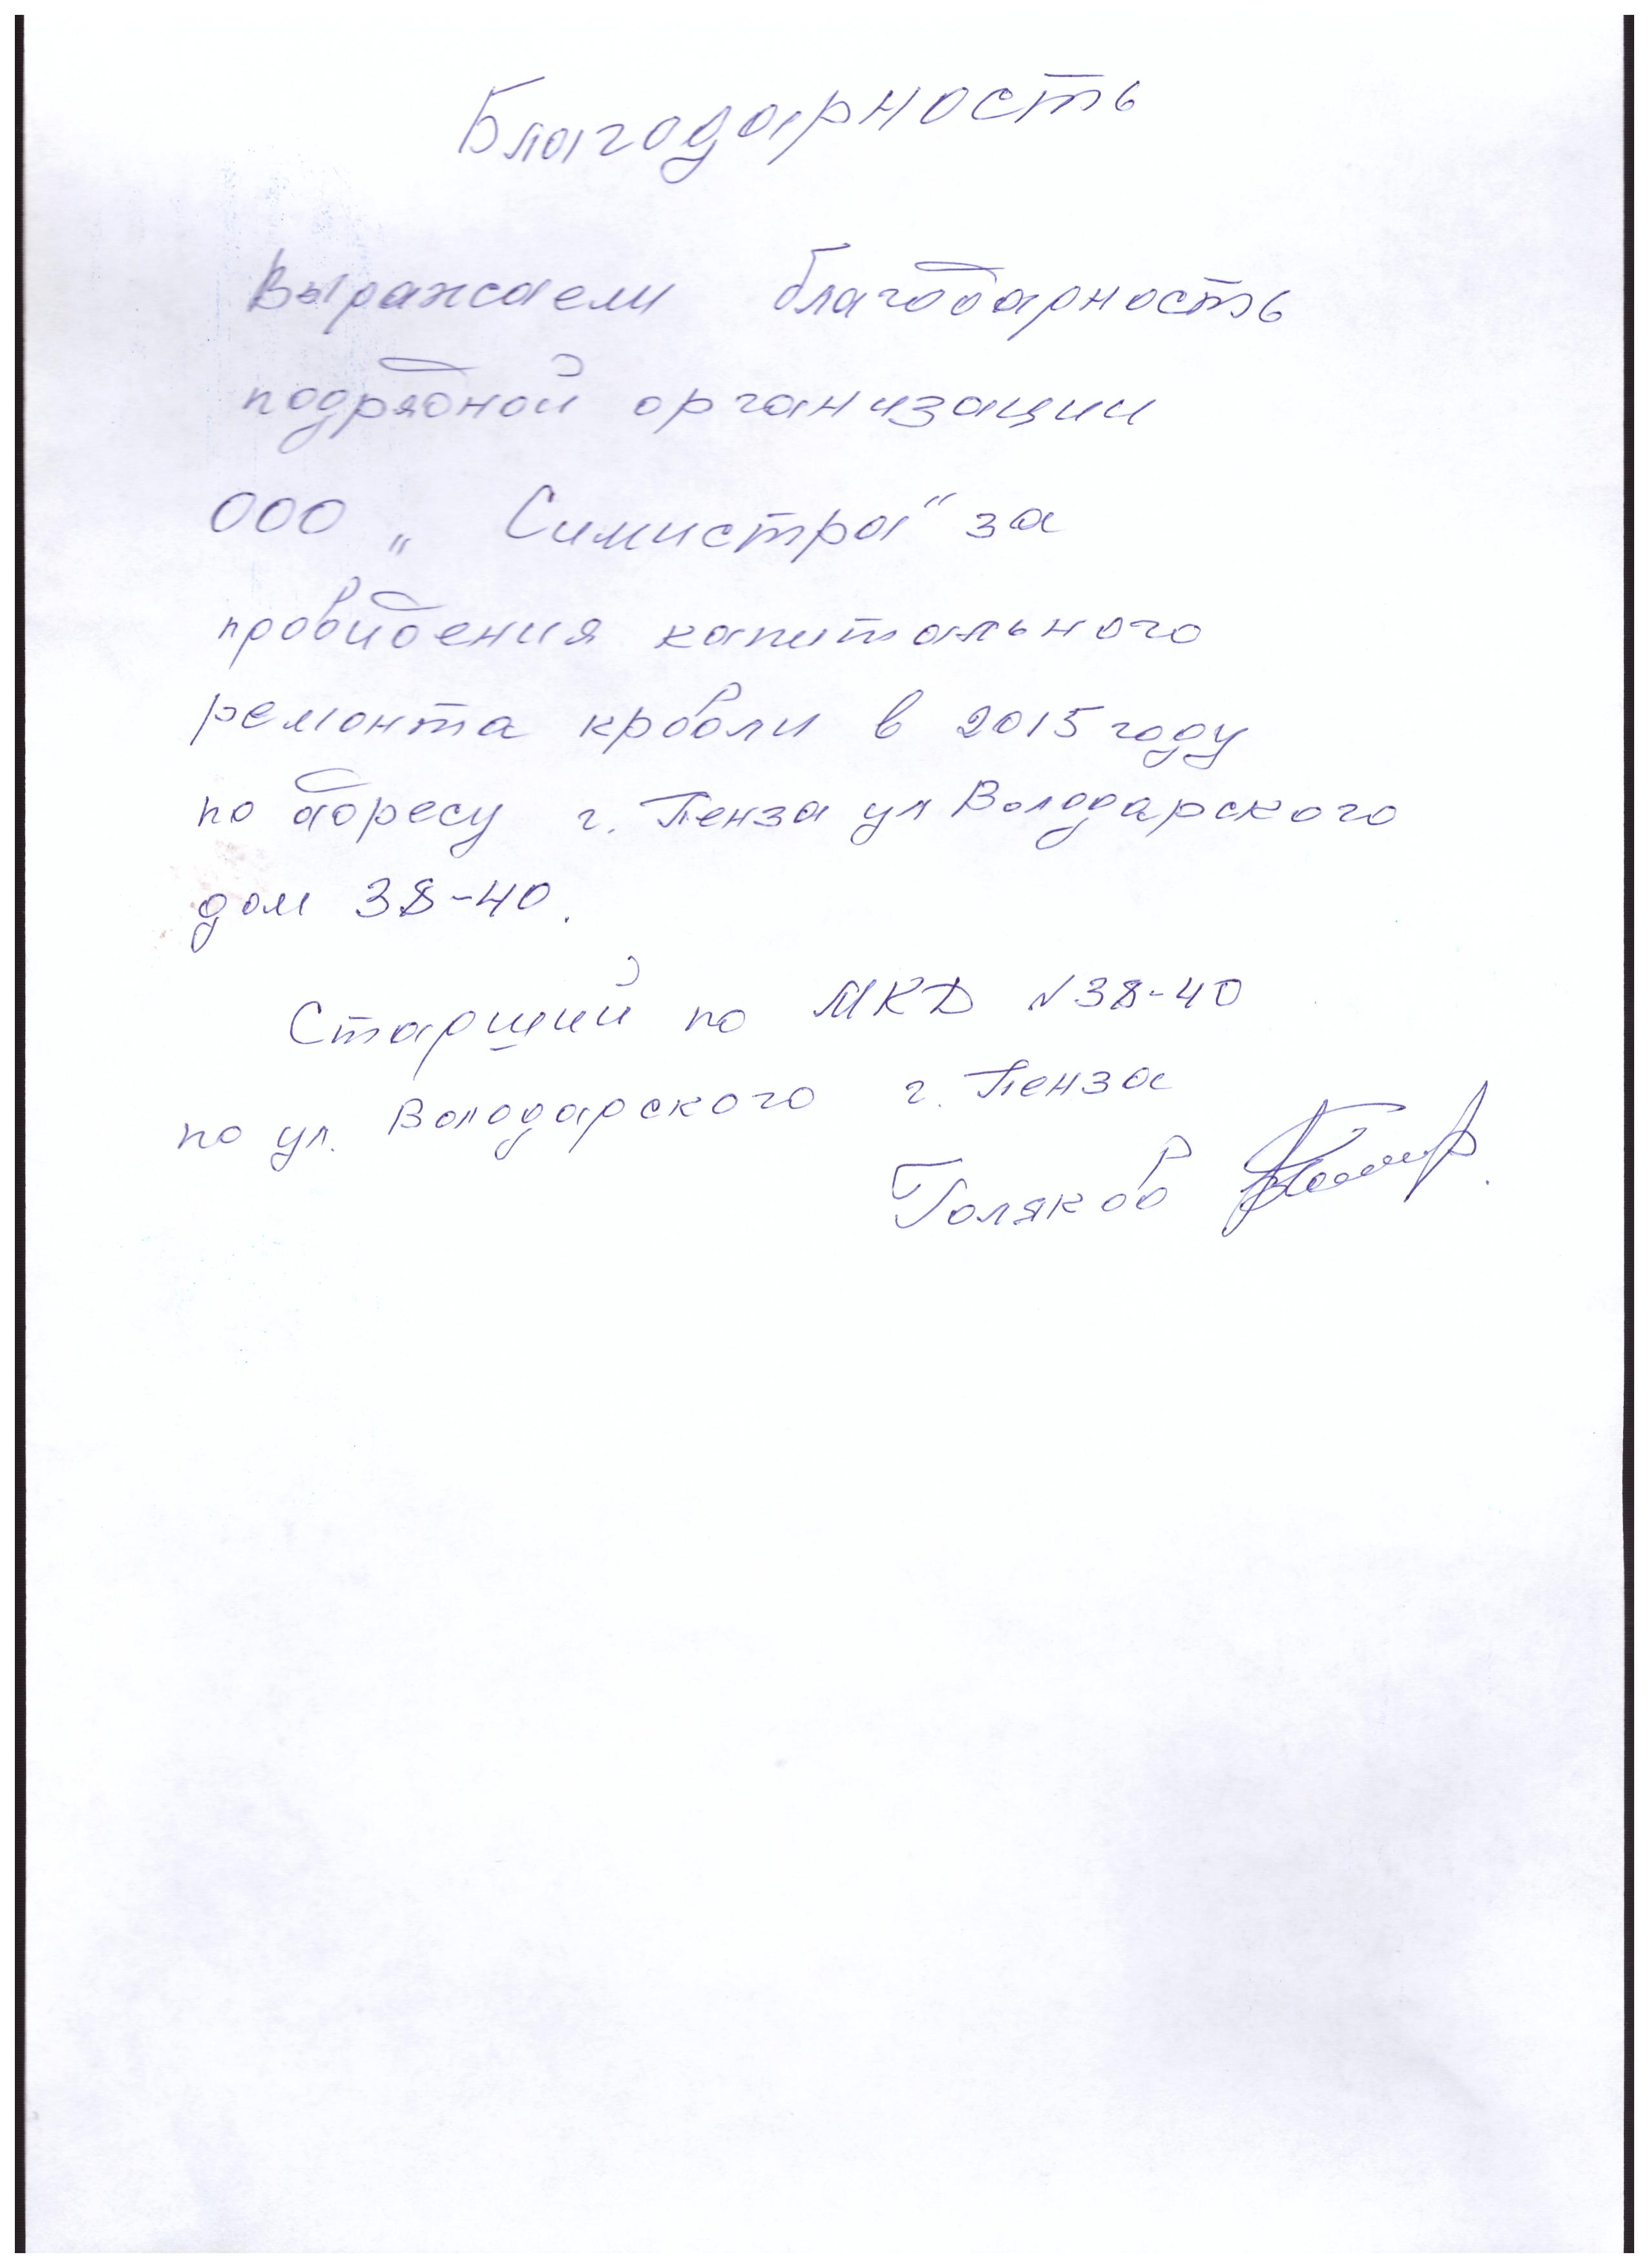 Благодарность
Выражаем благодарность
подрядной организации
ООО „ Симистра" за
провидения капитального
ремонта кровли в 2015 году
по адресу г. Пенза ул Володарского
дом 38-40.
Старший по МКД N 38-40
по ул. Володарского г. Пенза
Поляков